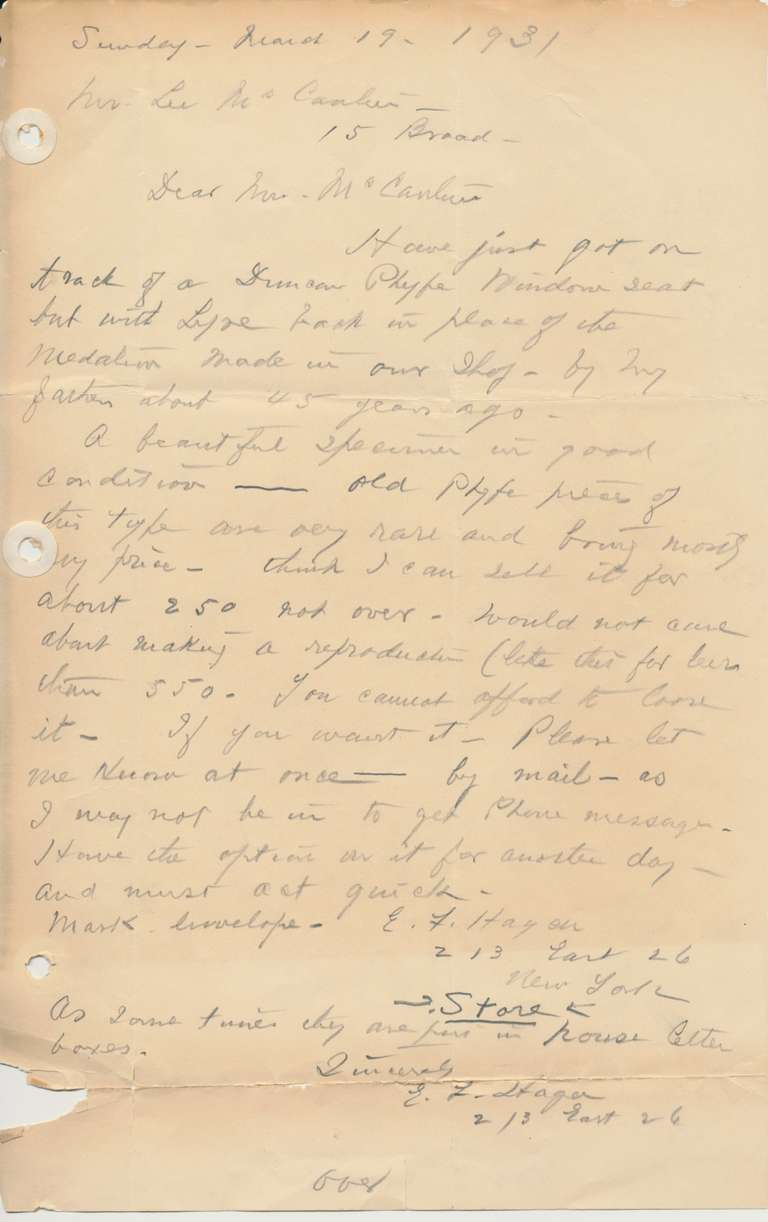 Sunday - March 19 - 1931
Mr. Lee Mc
15 Broad -
Dear Mr. Mc
Have just got on
track of a Duncan Phyfe Window seat
but with Lyre back in place of the
Medalion Made in our Shop - by My
father about 45 years ago -
A beautiful specimen in good
condition — old Phyfe pieces of
this type are very rare and bring mostly
any price - think I can sell it for
about 250 not over - would not care
about making a reproduction (like this for less
than 550 - You cannot afford to loose
it - If you want it - Please let
me Know at once — by mail - as
I may not be in to get Phone message -
Have the option on it for another day -
and must act quick -
Mark envelope - E. F. Hagen
213 East 26
New York
→ Store ←
As some times they are put in house letter
boxes.
Sincerely
E. F. Hagen
213 East 26
over